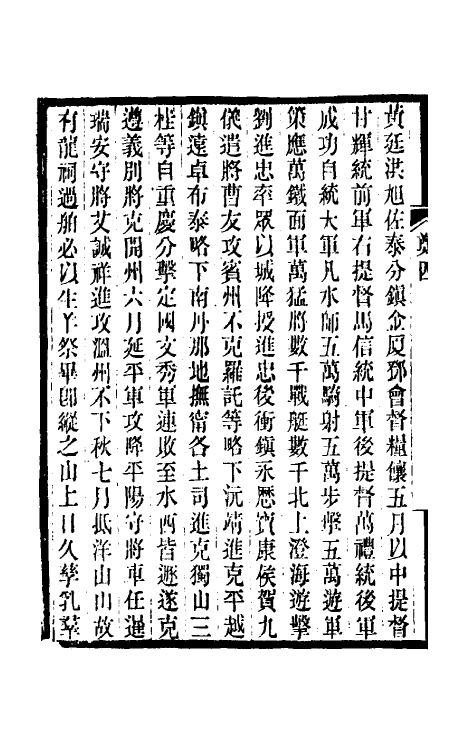 黃廷洪旭佐泰分鎮金厦鄧會督糧饟五月以中提督
甘輝統前軍右提督馬信統中軍後提督萬禮統後軍
成功自統大軍凡水師五萬騎射五萬步擊五萬遊軍
策應萬鐵面軍萬猛將數千戰艇數千北上澄海遊擊
劉進忠率眾以城降授進忠後衝鎮永歷寶康侯賀九
儀遣將曹友攻賓州不克羅託等略下沅靖進克平越
鎮遠卓布泰略下南丹那地撫甯各土司進克獨山三
桂等自重慶分擊定國文秀軍連敗至水西皆遯遂克
遵義別將克開州六月延平軍攻降平陽守將車任暹
瑞安守將艾誠祥進攻溫州不下秋七月抵洋山山故
有龍祠過舶必以生羊祭畢卽縱之山上日久孳乳羣
鄭四